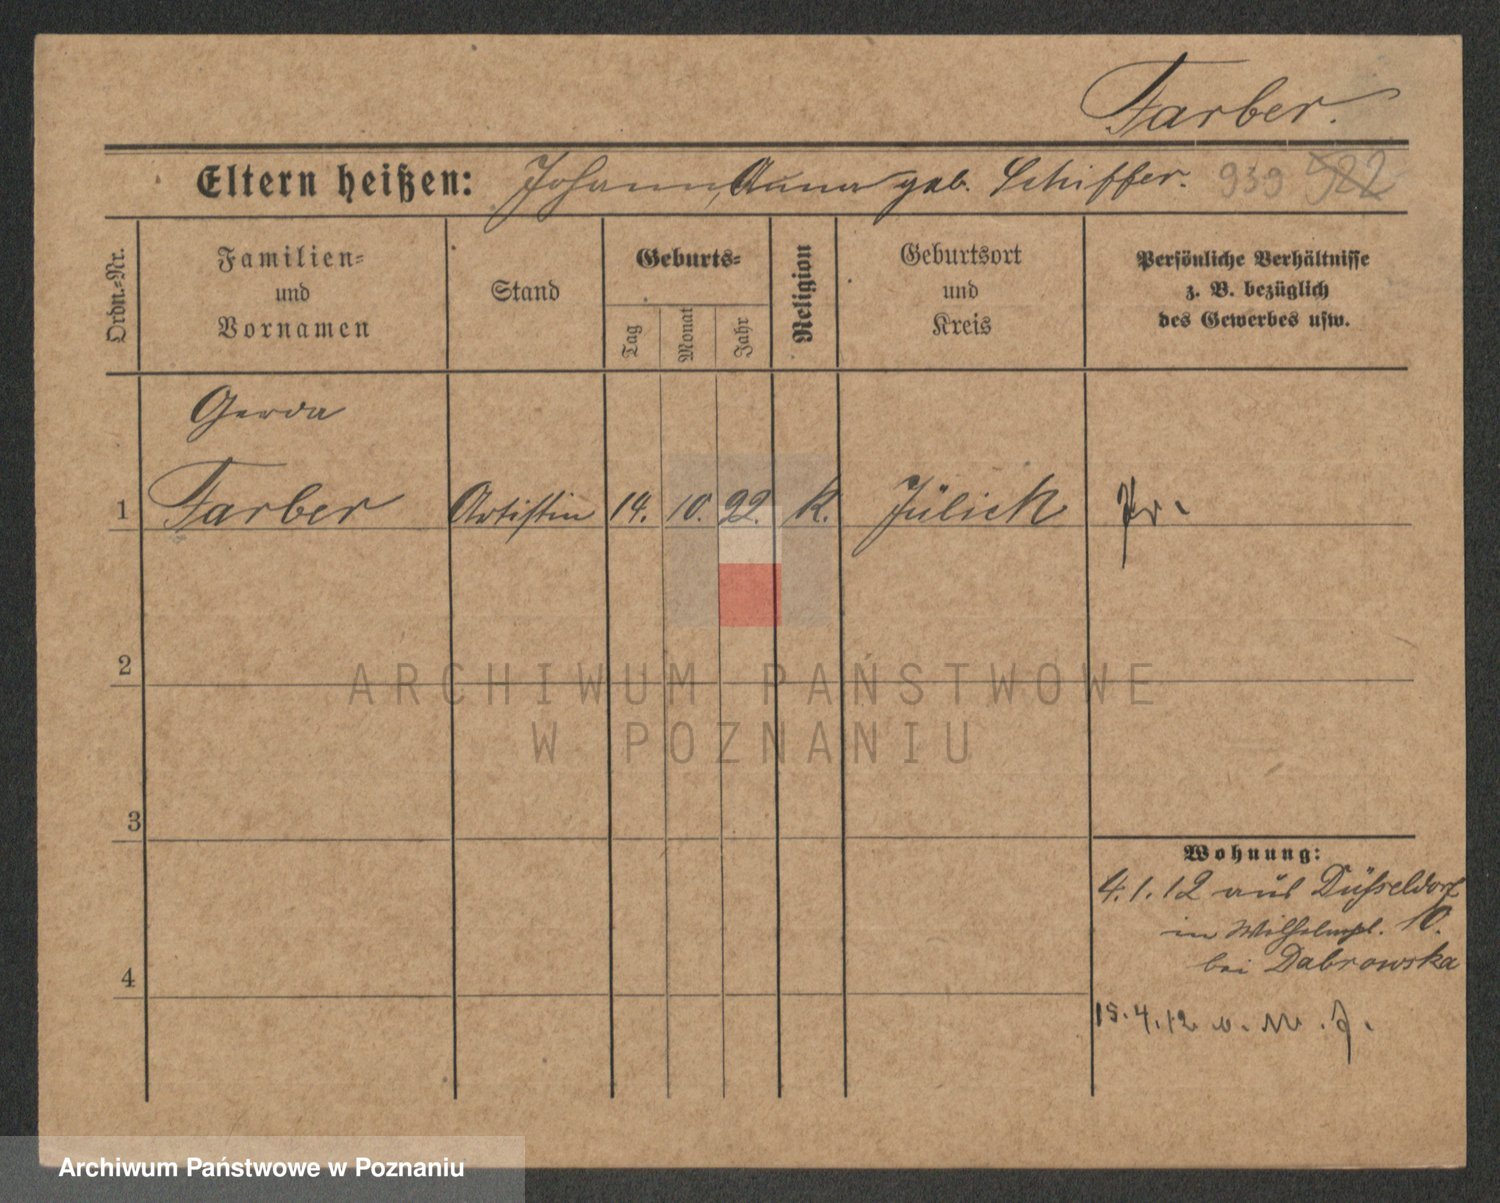 Farber.
Eltern heißen: Johann, Anna geb. Schiffer. 939 522
Ordn.-Nr.
Familien-
und
Vornamen
Stand
Geburts-
Tag
Monat
Jahr
Religion
Geburtsort
und
Kreis
Persönliche Verhältnisse
z. B. bezüglich
des Gewerbes usw.
Gerda
1 Farber Artistin 14. 10. 92. k. Jülich Pr.
2
3
4
Wohnung:
4.1.12 aus Düsseldorf
in Wilhelmpl. 10.
bei Dabrowska
15.4.12
ARCHIWUM PAŃSTWOWE
W POZNANIU
Archiwum Państwowe w Poznaniu